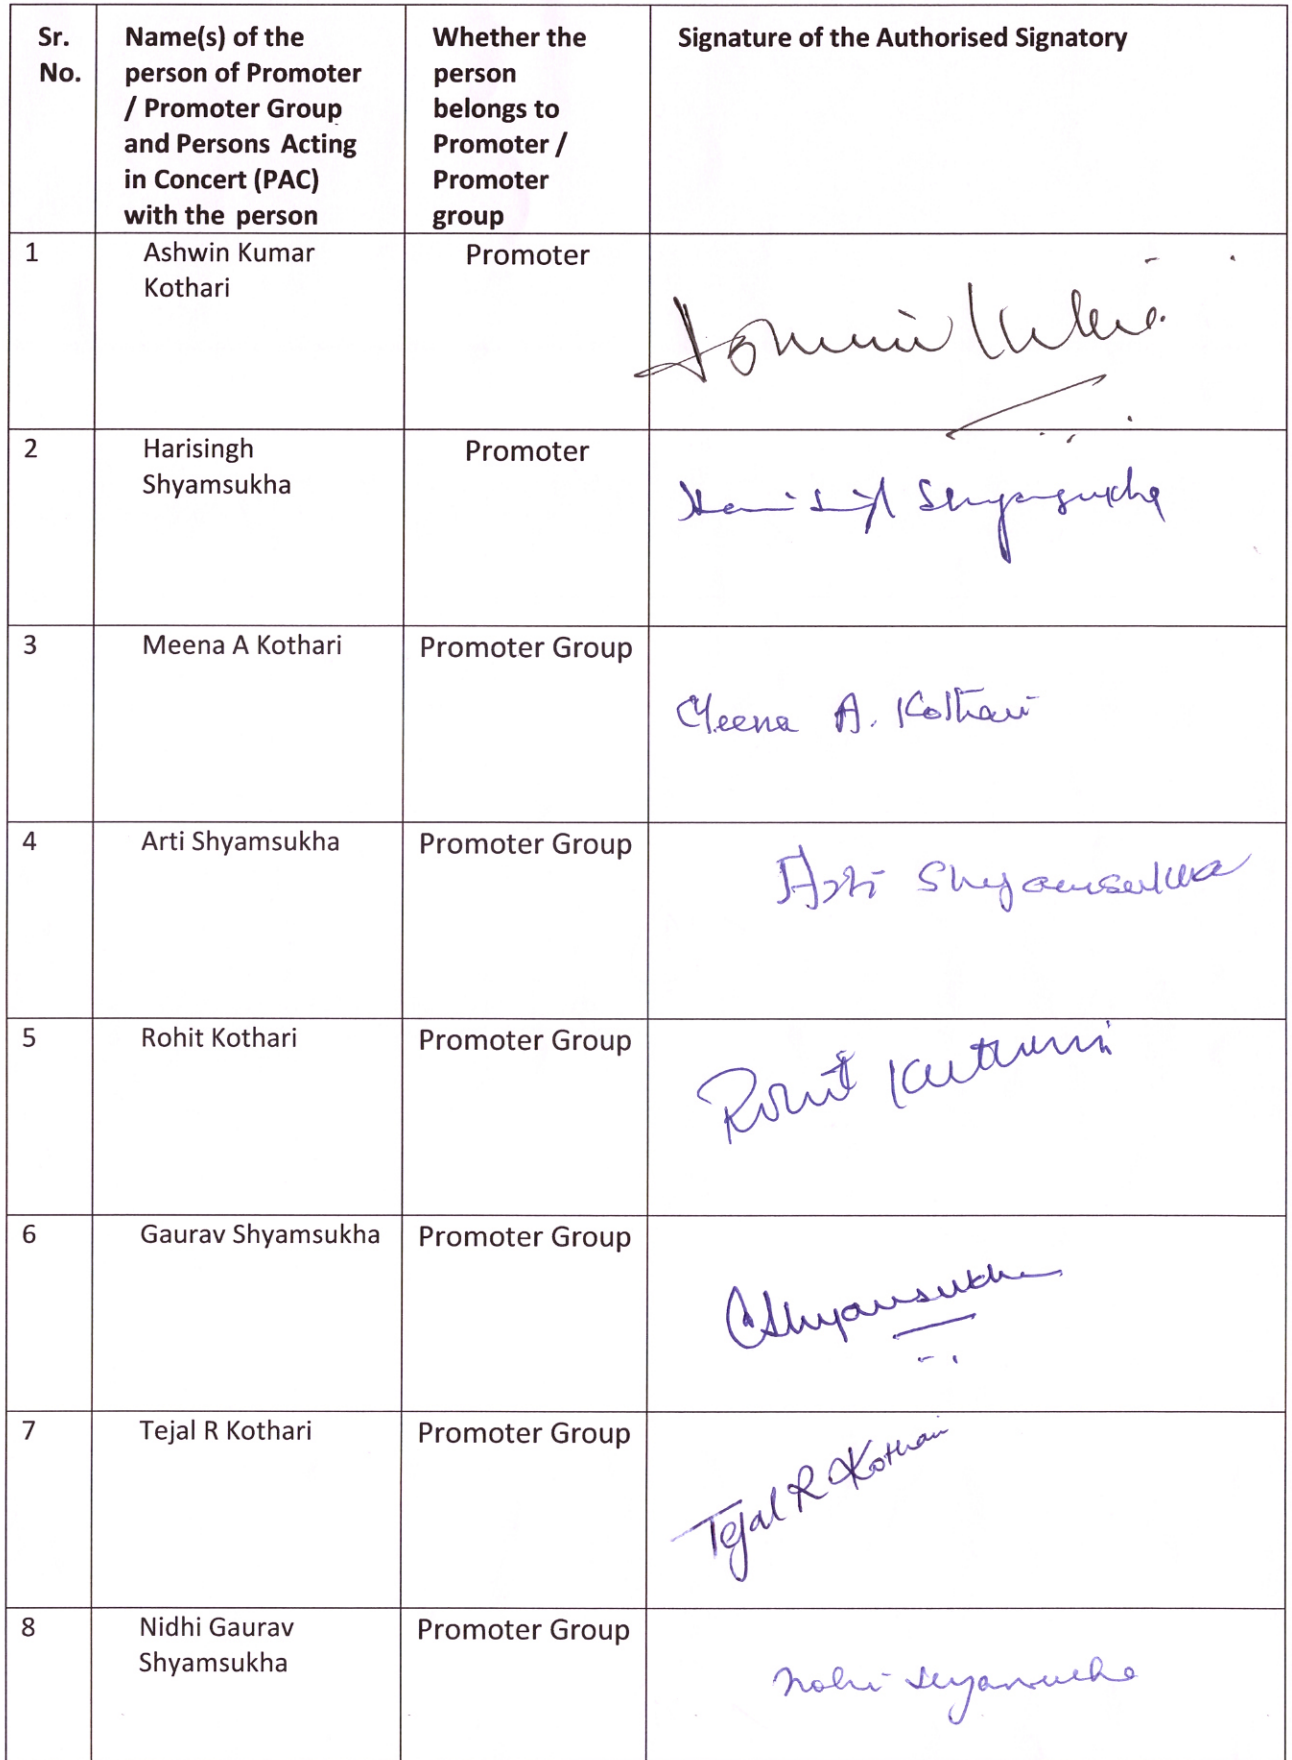 Sr. No.
Name(s) of the person of Promoter / Promoter Group and Persons Acting in Concert (PAC) with the person
Whether the person belongs to Promoter / Promoter group
Signature of the Authorised Signatory
1
Ashwin Kumar
Kothari
Promoter
2
Harisingh
Shyamsukha
Promoter
Shyamsukha
3
Meena A Kothari
Promoter Group
Meena A. Kothari
4
Arti Shyamsukha
Promoter Group
Arti Shyamsukha
5
Rohit Kothari
Promoter Group
Rohit Kothari
6
Gaurav Shyamsukha
Promoter Group
GShyamsukha
7
Tejal R Kothari
Promoter Group
Tejal R Kothari
8
Nidhi Gaurav
Shyamsukha
Promoter Group